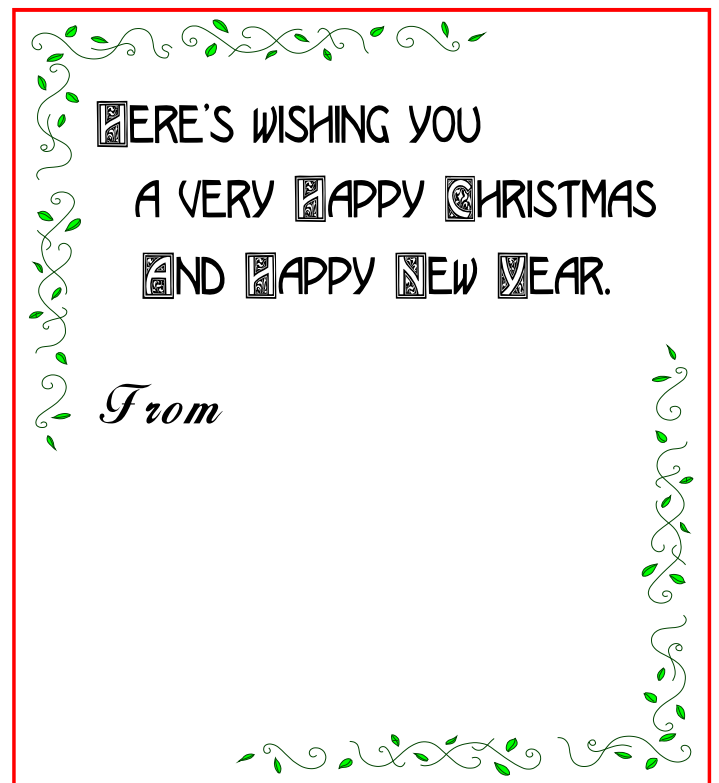 Here's wishing you
a very Happy Christmas
And Happy New Year.
From